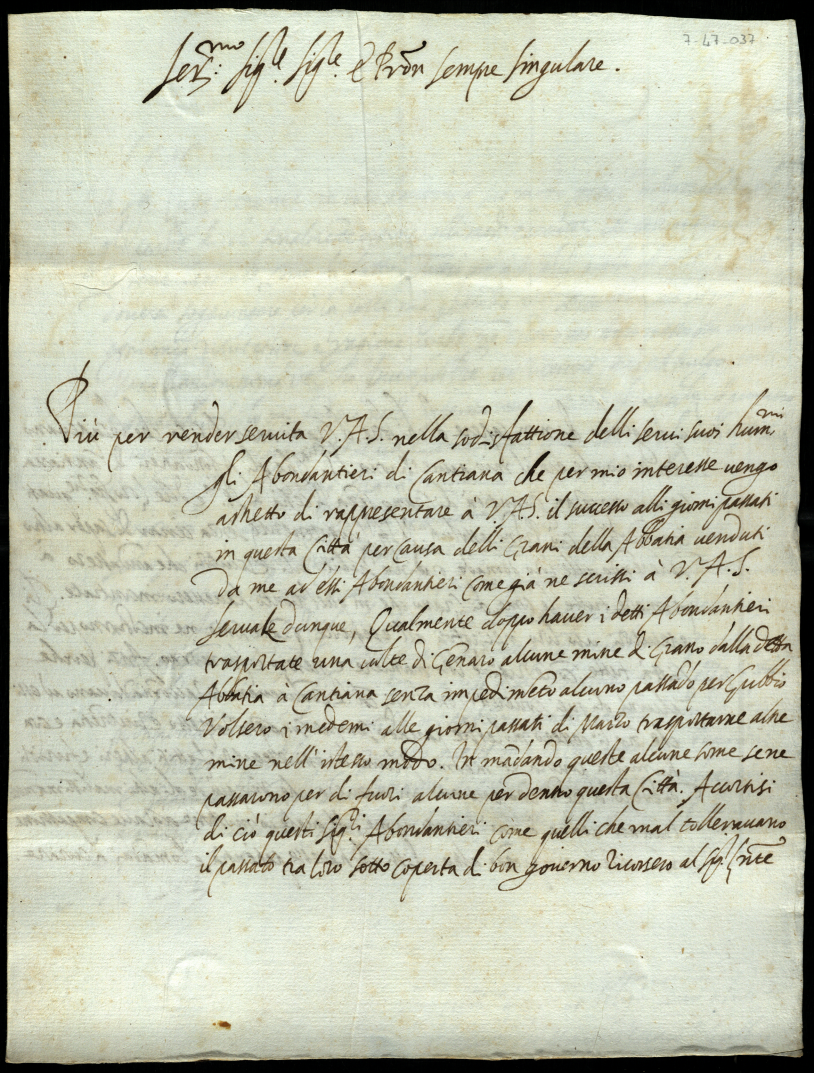 7-47-037
Ser.mo Sig.re Sig.re e Pron sempre singulare.
Più per render servita V.A.S. nella sodisfattione delli servi suoi hum.mi
gli Abondantieri di Cantiana che per mio interesse vengo
astretto di rappresentare à V.A.S. il successo alli giorni passati
in questa Città per causa delli Grani della Abbatia venduti
da me ad essi Abondantieri come già ne scrissi à V.A.S.
dunque, Qualmente doppo haver i detti Abondantieri
trasportate una volte di Genaro alcune mine di Grano dalla detta
Abbatia à Cantiana senza impedimeto alcuno passado per Gubbio
Volsero i medemi alle giorni passati di Marzo trasportarne altre
mine nell'istesso modo. Et madando queste alcune some se ne
passarono per di fuori alcune per dentro questa Città. Accortisi
di ciò questi Sig.ri Abondantieri come quelli che mal tolleravano
il passato tra loro sotto coperta di bon governo ricorsero al Sig.r